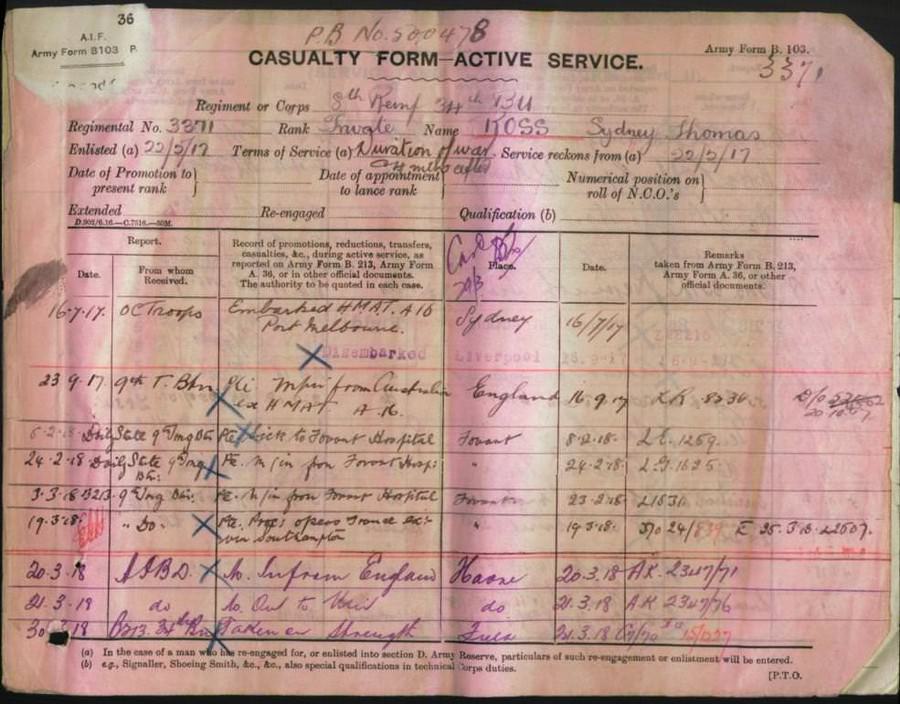 36
A.I.F.
Army Form B103 P.
P.B No. 500478
CASUALTY FORM—ACTIVE SERVICE.
Army Form B. 103.
3371
Regiment or Corps 8th Reinf 34th Bn
Regimental No. 3371 Rank Private Name ROSS Sydney Thomas
Enlisted (a) 22/5/17 Terms of Service (a) Duration of war Service reckons from (a) 22/5/17
4 mths after
Date of Promotion to present rank } Date of appointment to lance rank Numerical position on roll of N.C.O.'s }
Extended Re-engaged Qualification (b)
D.902/6.16.—C.7516.—50M.
Report.
Date.
From whom Received.
Record of promotions, reductions, transfers, casualties, &c., during active service, as reported on Army Form B. 213, Army Form A. 36, or in other official documents. The authority to be quoted in each case.
Place.
Date.
Remarks taken from Army Form B. 213, Army Form A. 36, or other official documents.
16.7.17. OC Troops Embarked H.M.A.T. A16 Port Melbourne. Sydney 16/7/17
Disembarked Liverpool
23.9.17 9th T. Btn from Australia ex HMAT A.16. England 16.9.17
Daily State 9 Tng Btn Pte Sick to Fovant Hospital Fovant 8.2.18. 1269.
24.2.18 Daily State 9 Tng Btn: Pte. M/in from Fovant Hosp: " 24.2.18 1625.
3.3.18 B213 9 Tng Btn: Pte. M/in from Fovant Hospital Fovant 23.2.18
19.3.18 " Do. Pte. Proc: o'seas France ex: via Southampton " 19.3.18.
20.3.18 England Havre 20.3.18 AK. 2347/71
21.3.18 do M. Out to Unit do 21.3.18 AK 2347/76
30 18 B213. 34th Bn Taken on Strength Field 24.3.18
(a) In the case of a man who has re-engaged for, or enlisted into section D. Army Reserve, particulars of such re-engagement or enlistment will be entered.
(b) e.g., Signaller, Shoeing Smith, &c., &c., also special qualifications in technical Corps duties.
[P.T.O.